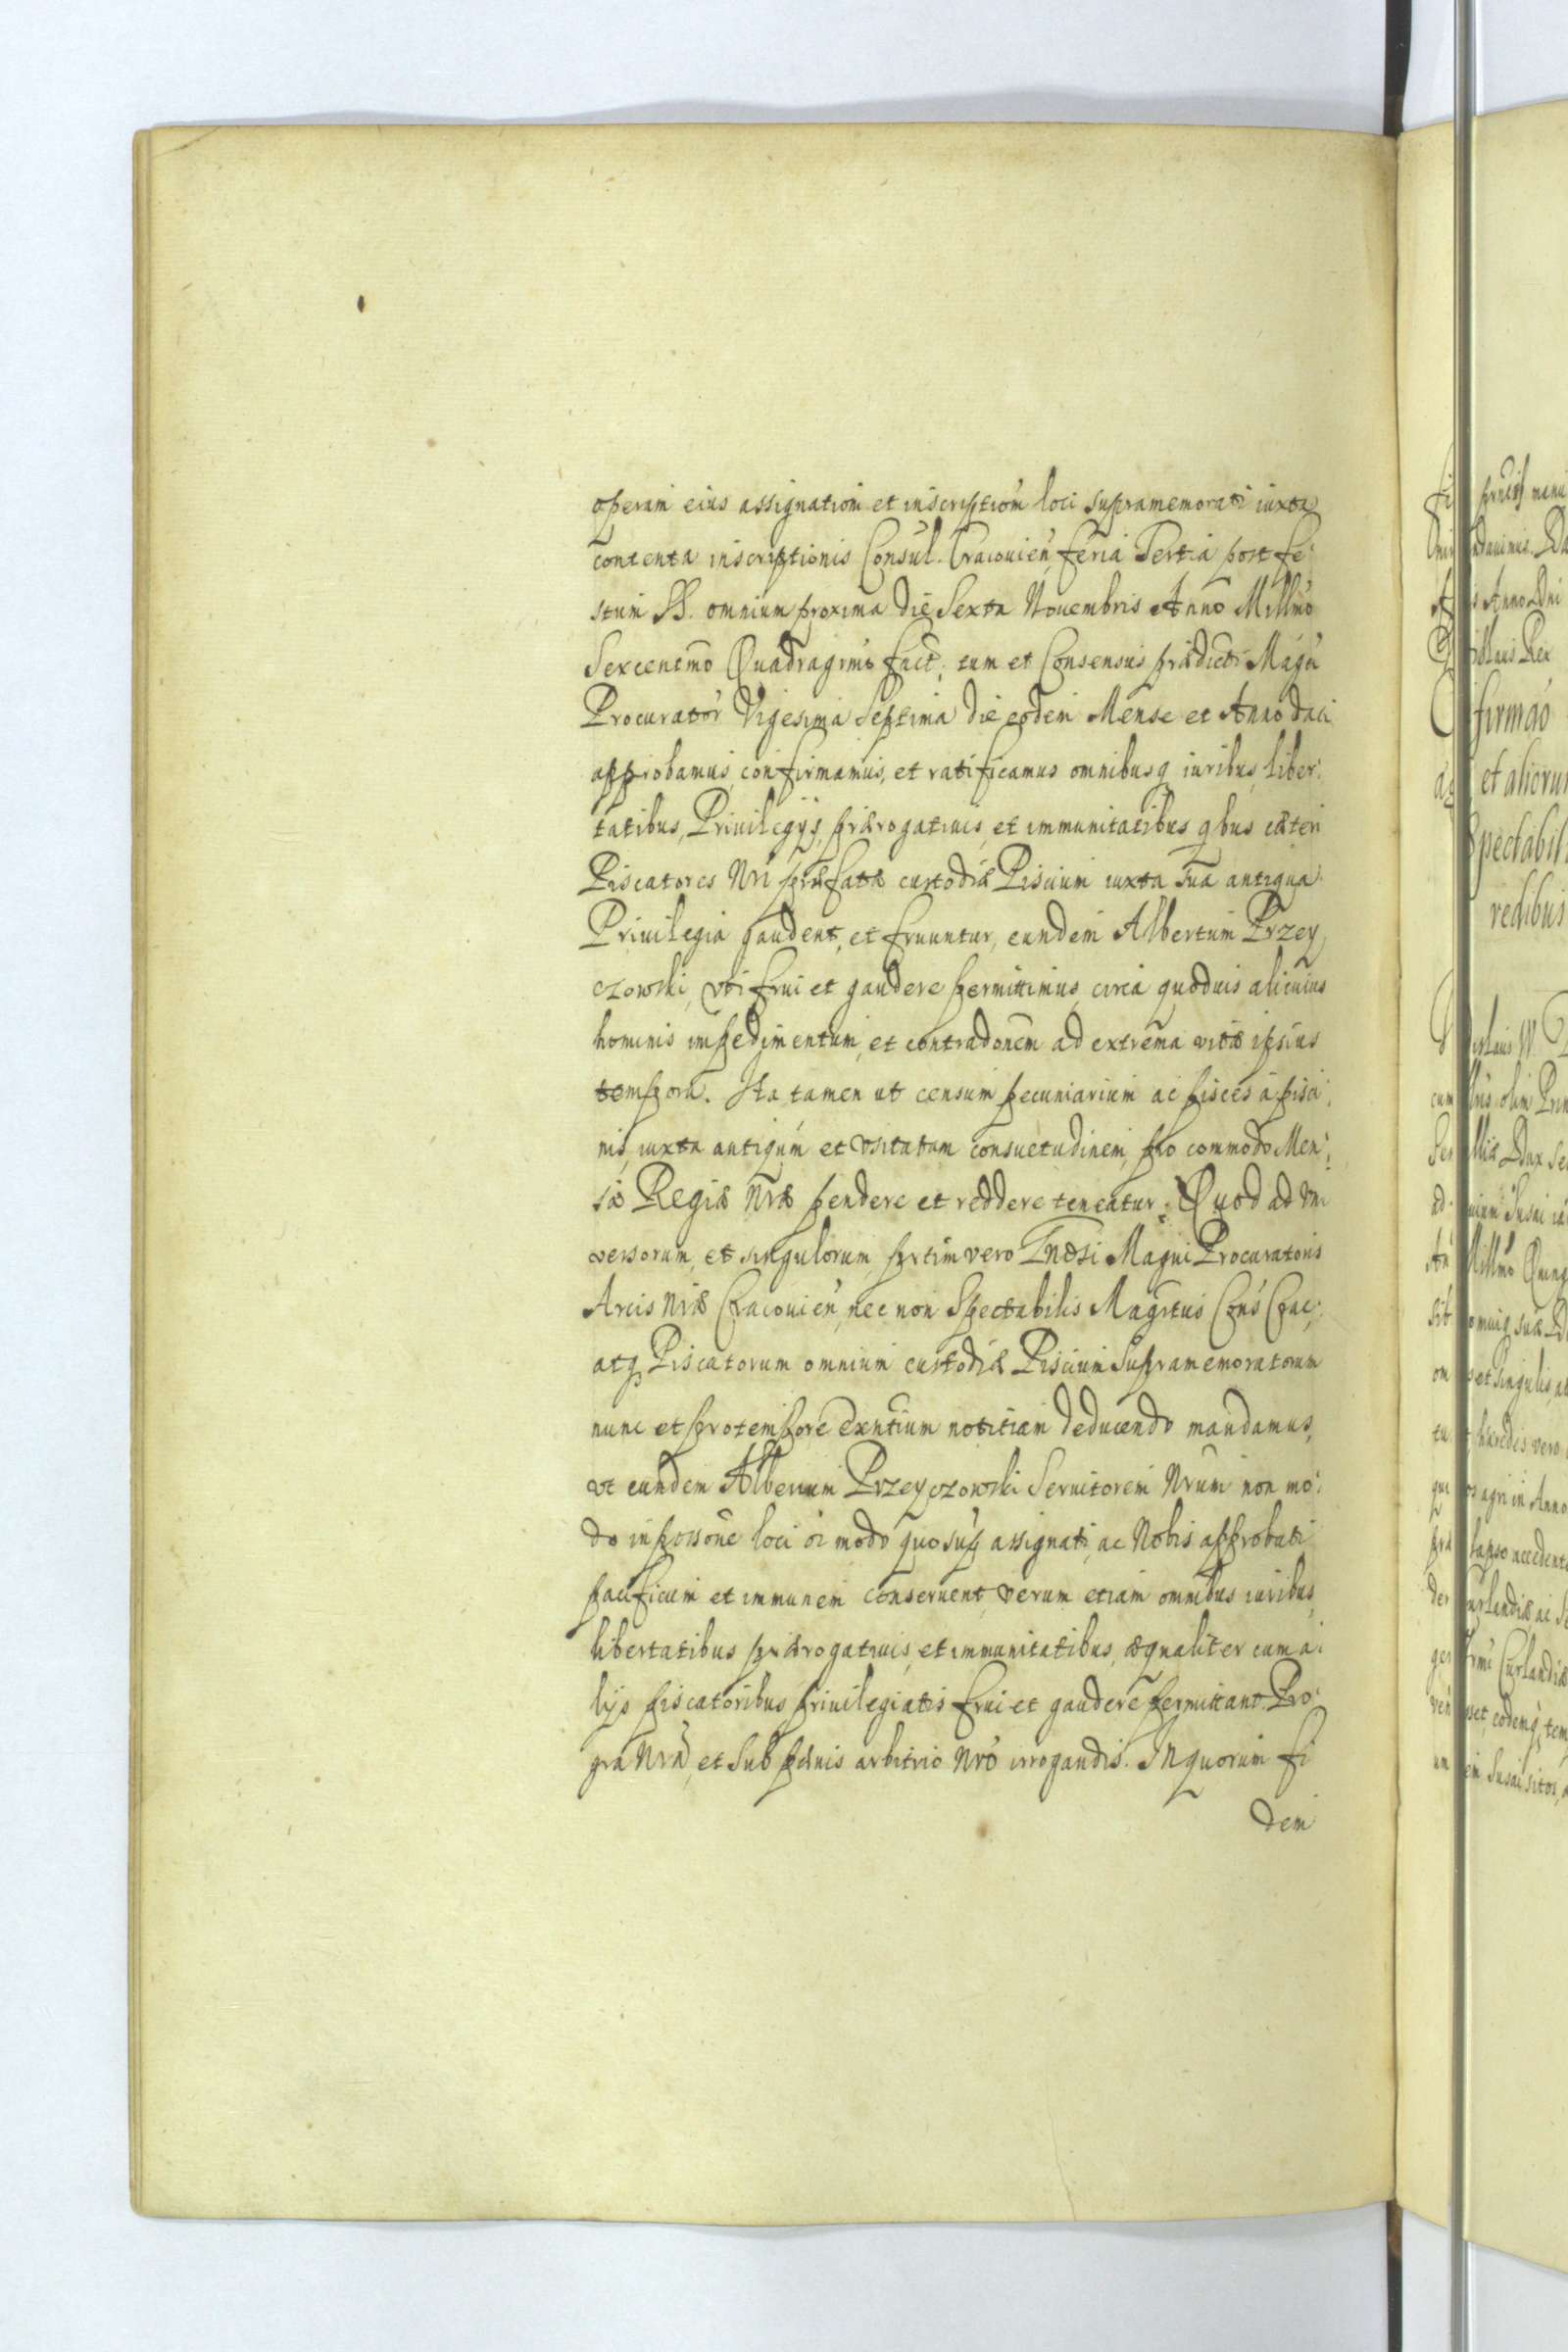 operam eius assignation et inscription loci supramemorati iuxta
contenta inscriptionis Consul. Cracouien feria Tertia post fe:
stum SS. omnium proxima die Sexta Nouembris Anno Millmo
Sexcentmo Quadragmo fact: tum et Consensus prædicti Magci
Procurator Vigesima Septima die eodem Mense et Anno dati
approbamus, confirmamus, et ratificamus omnibusq iuribus, liber:
tatibus, Priuilegijs, prærogatiuis, et immunitatibus qbus cæteri
Piscatores Nri præfatæ custodiæ Piscium iuxta sua antiqua
Priuilegia gaudent, et fruuntur, eundem Albertum Przey
czowski, vti frui et gaudere permittimus, circa quoduis alicuius
hominis impedimentum, et contradonem ad extrema vitæ ipsius
tempora. Ita tamen ut censum pecuniarium ac pisces a pisci:
nis, iuxta antiqum et vsitatam consuetudinem, pro commodo Men:
sæ Regiæ Nræ pendere et reddere teneatur: Quod ad vni
versorum, et singulorum, prtim vero Gnosi Magni Procuratoris
Arcis Nræ Cracouien, nec non Spectabilis Magrtus Cons Crac,
atq Piscatorum omnium custodiæ Piscium supramemoratorum
nunc et pro tempore exntium notitiam deducendo mandamus,
vt eundem Albertum Przeyczowski Seruitorem Nrum non mo:
do in possone loci oi modo quo sup assignati, ac Nobis approbati
pacificum et immunem conseruent, verum etiam omnibus iuribus,
libertatibus prærogatiuis, et immunitatibus, æqualiter cum a:
lijs piscatoribus priuilegiatis frui et gaudere permittant. Pro
gra Nra, et sub pænis arbitrio Nro irrogandis. In quorum fi
dem